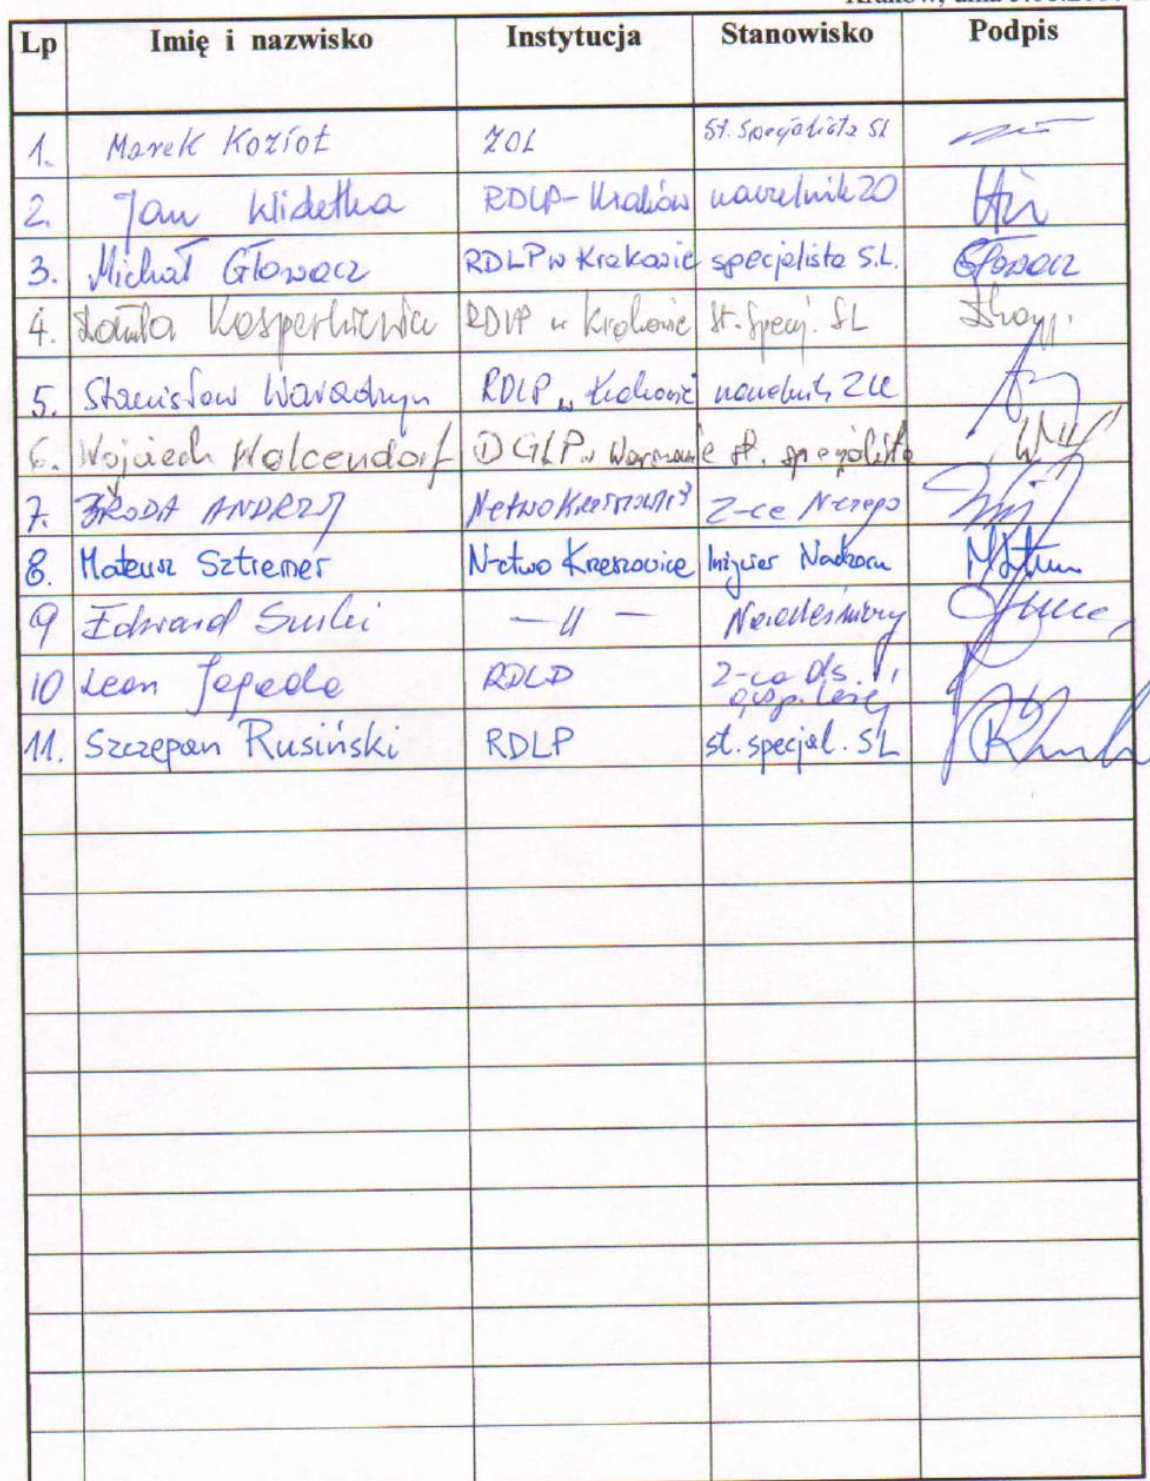 Lp Imię i nazwisko Instytucja Stanowisko Podpis
1. Marek Kozioł ZOL St. Specjalista SL
2. Jan Widełka RDLP-Kraków naczelnik ZO
3. Michał Głowacz RDLP w Krakowie specjalista S.L. Głowacz
4. Kasperkiewicz RDLP w Krakowie St. Specj. SL
5. Stanisław RDLP w Krakowie naczelnik
6. Wojciech Walcendorf DGLP w Warszawie st. specjalista
7. ŹRODA ANDRZEJ Z-ca N-czego
8. Mateusz Sztremer N-ctwo Krzeszowice Inżynier Nadzoru
9 Edward — " — Nadleśniczy
10 Leon Jagoda RDLP Z-ca Ds.
gosp. leśnej
11. Szczepan Rusiński RDLP st. specjal. SL